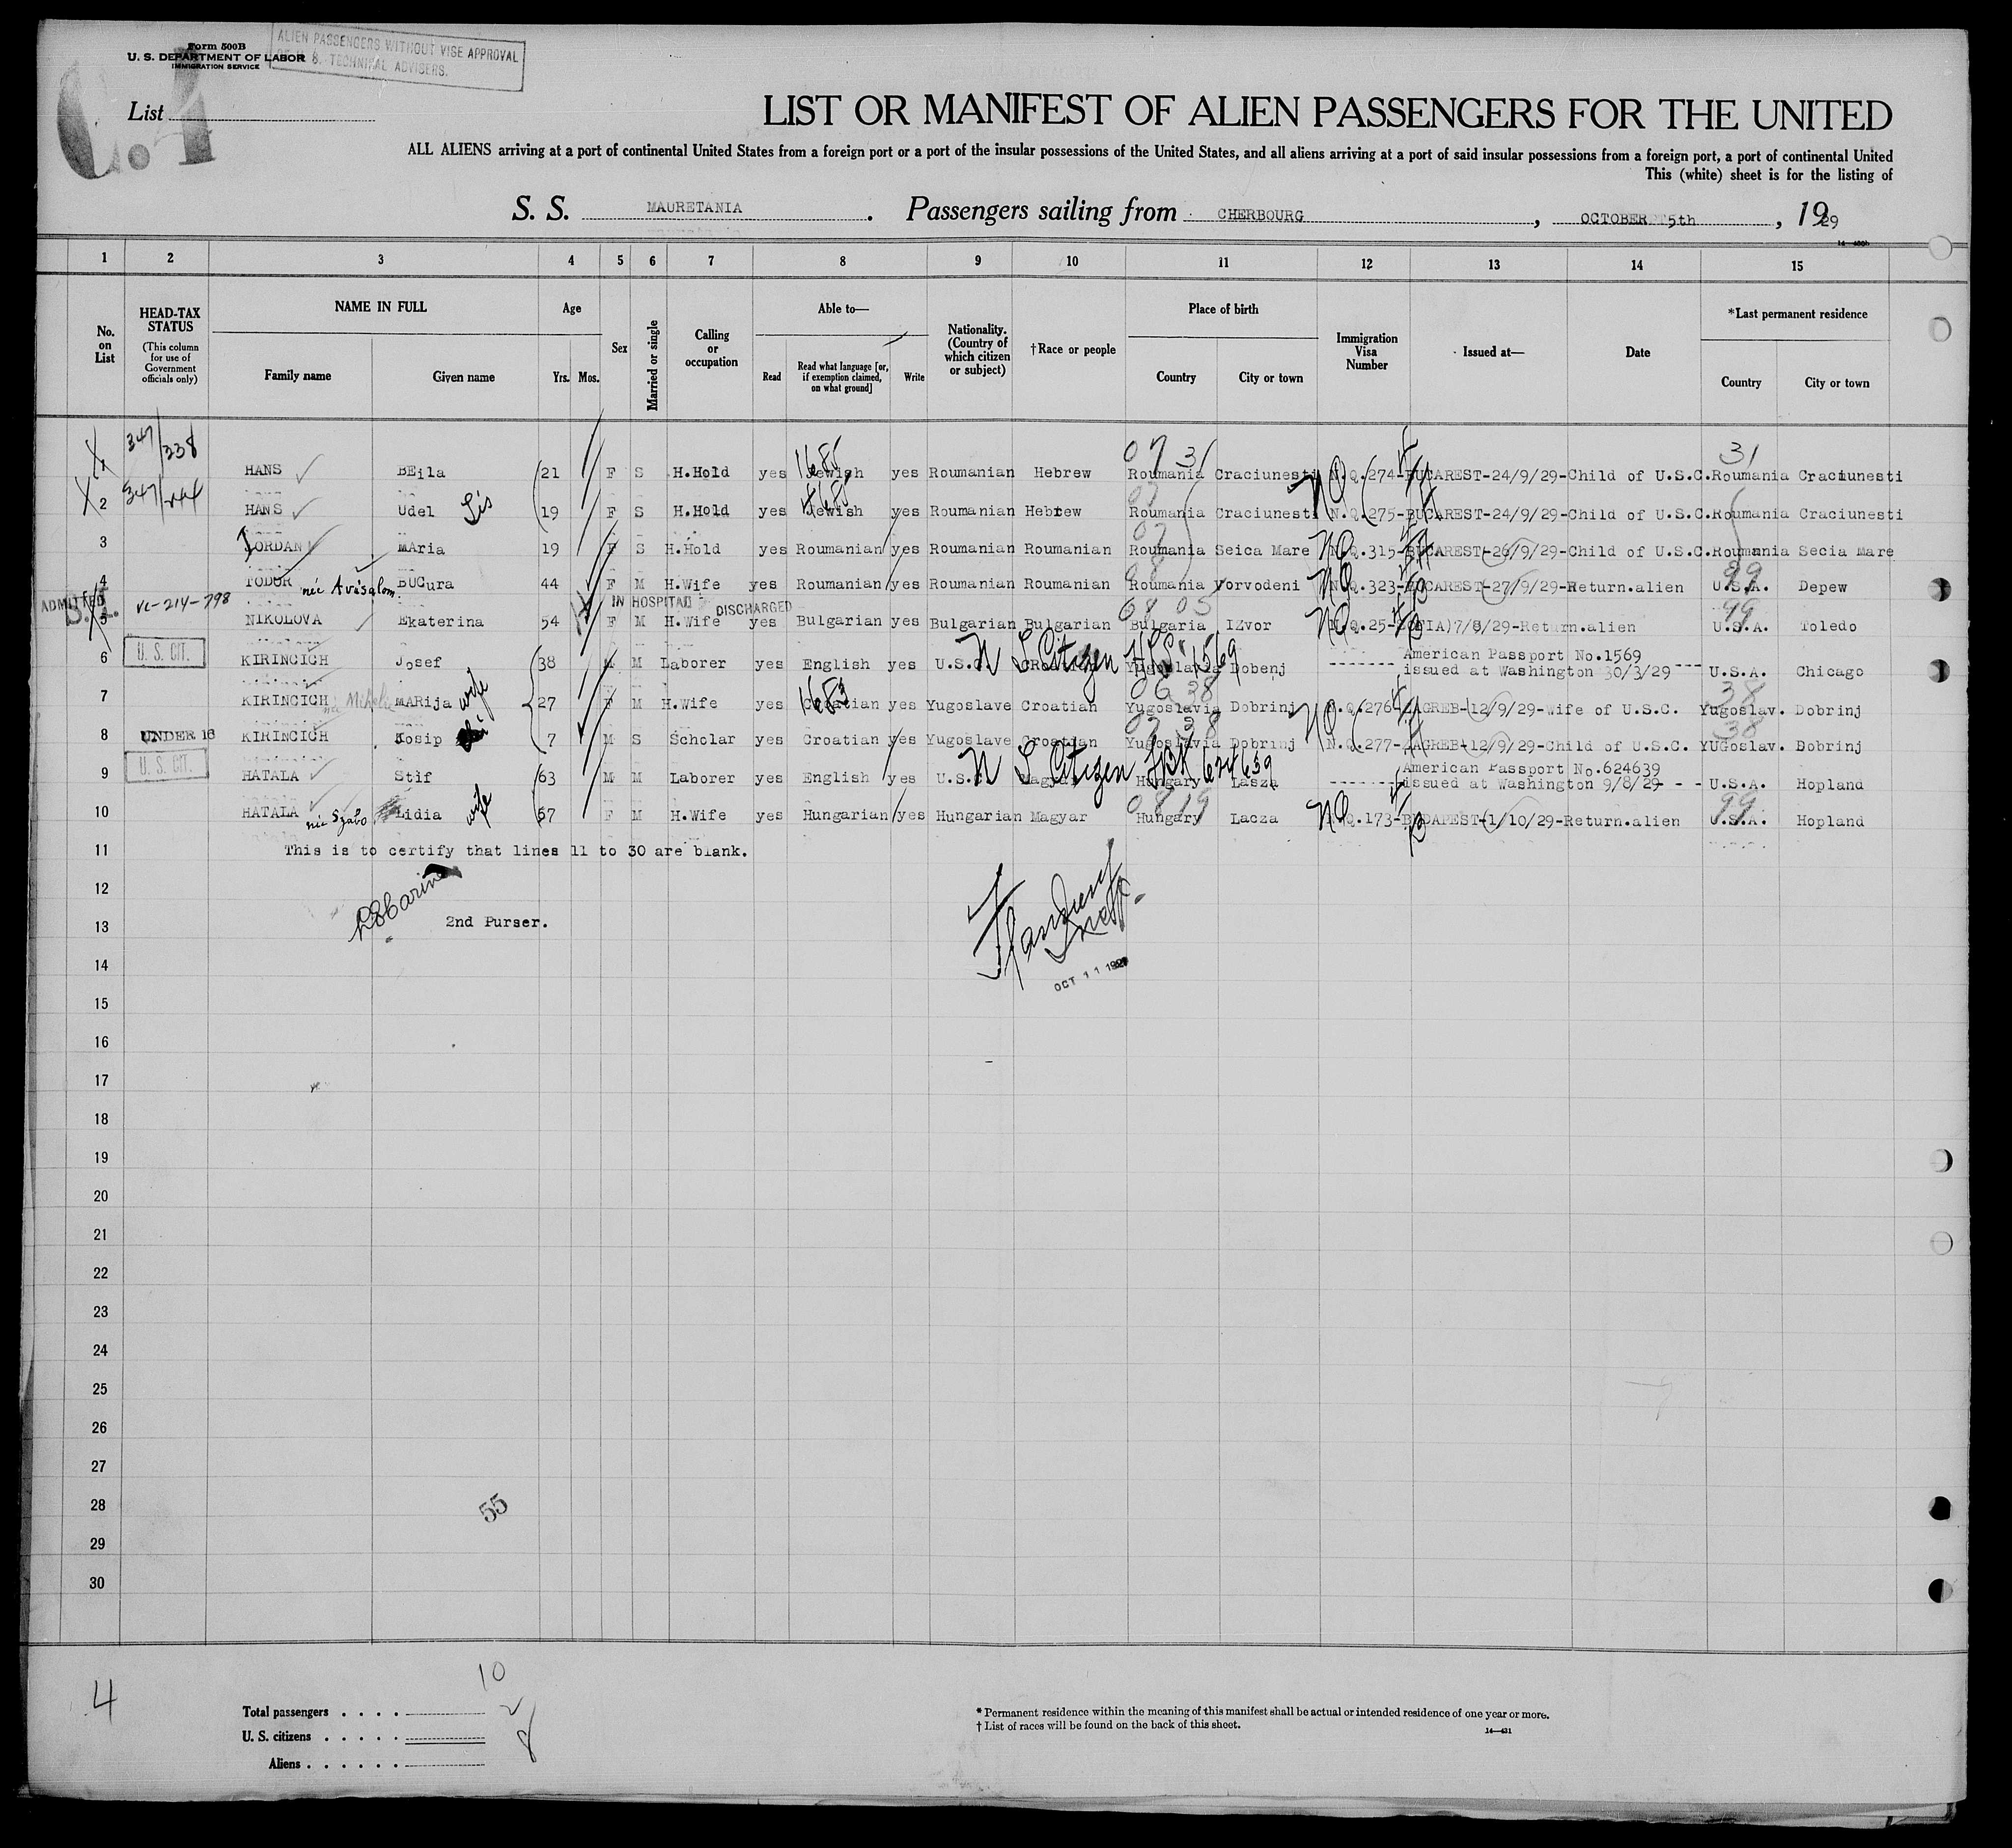 Form 500B
U. S. DEPARTMENT OF LABOR
IMMIGRATION SERVICE
ALIEN PASSENGERS WITHOUT VISE APPROVAL
OF U. S. TECHNICAL ADVISERS.
C.4
List
LIST OR MANIFEST OF ALIEN PASSENGERS FOR THE UNITED
ALL ALIENS arriving at a port of continental United States from a foreign port or a port of the insular possessions of the United States, and all aliens arriving at a port of said insular possessions from a foreign port, a port of continental United
This (white) sheet is for the listing of
S. S. MAURETANIA . Passengers sailing from CHERBOURG , OCTOBER 5th , 1929
1 2 3 4 5 6 7 8 9 10 11 12 13 14 15
No. on List
HEAD-TAX STATUS
(This column for use of Government officials only)
NAME IN FULL
Family name Given name
Age
Yrs. Mos.
Sex
Married or single
Calling or occupation
Able to—
Read
Read what language [or, if exemption claimed, on what ground]
Write
Nationality. (Country of which citizen or subject)
†Race or people
Place of birth
Country City or town
Immigration Visa Number
Issued at—
Date
*Last permanent residence
Country City or town
347/338 073 31
1 HANS BEila 21 F S H.Hold yes Jewish yes Roumanian Hebrew Roumania Craciunesti N.Q.274-BUCAREST-24/9/29-Child of U.S.C. Roumania Craciunesti
2 HANS Udel Sis 19 F S H.Hold yes Jewish yes Roumanian Hebrew Roumania Craciunesti N.Q.275-BUCAREST-24/9/29-Child of U.S.C. Roumania Craciunesti
3 JORDAN MAria 19 F S H.Hold yes Roumanian yes Roumanian Roumanian Roumania Seica Mare N.Q.315-BUCAREST-26/9/29-Child of U.S.C. Roumania Secia Mare
4 TODOR née Avisalom BUCura 44 F M H.Wife yes Roumanian yes Roumanian Roumanian Roumania Vorvodeni N.Q.323-BUCAREST-27/9/29-Return.alien U.S.A. Depew
ADMITTED VL-214-798 IN HOSPITAL DISCHARGED
5 NIKOLOVA Ekaterina 54 F M H.Wife yes Bulgarian yes Bulgarian Bulgarian Bulgaria IZvor N.Q.25-SOFIA)7/8/29-Return.alien U.S.A. Toledo
6 U. S. CIT. KIRINCICH Josef 38 M M Laborer yes English yes U.S.C. Croatian Yugoslavia Dobenj American Passport No.1569
issued at Washington 30/3/29 U.S.A. Chicago
N S Citizen 1569
7 KIRINCICH MARija wife 27 F M H.Wife yes Croatian yes Yugoslave Croatian Yugoslavia Dobrinj N.Q.276-ZAGREB-12/9/29-Wife of U.S.C. Yugoslav. Dobrinj
8 UNDER 16 KIRINCICH Josip 7 M S Scholar yes Croatian yes Yugoslave Croatian Yugoslavia Dobrinj N.Q.277-ZAGREB-12/9/29-Child of U.S.C. YUGoslav. Dobrinj
9 U. S. CIT. HATALA Stif 63 M M Laborer yes English yes U.S.C. Magyar Hungary Lasza American Passport No.624639
issued at Washington 9/8/29 - - - U.S.A. Hopland
N S Citizen 624639
10 HATALA née Szabo Lidia wife 57 F M H.Wife yes Hungarian yes Hungarian Magyar Hungary Lacza N.Q.173-BUDAPEST-1/10/29-Return.alien U.S.A. Hopland
11 This is to certify that lines 11 to 30 are blank.
12
13 2nd Purser.
14
OCT 11 1929
15
16
17
18
19
20
21
22
23
24
25
26
27
28 55
29
30
4
10
Total passengers . . . . 2
U. S. citizens . . . . . 8
Aliens . . . . . .
* Permanent residence within the meaning of this manifest shall be actual or intended residence of one year or more.
† List of races will be found on the back of this sheet.
14—431